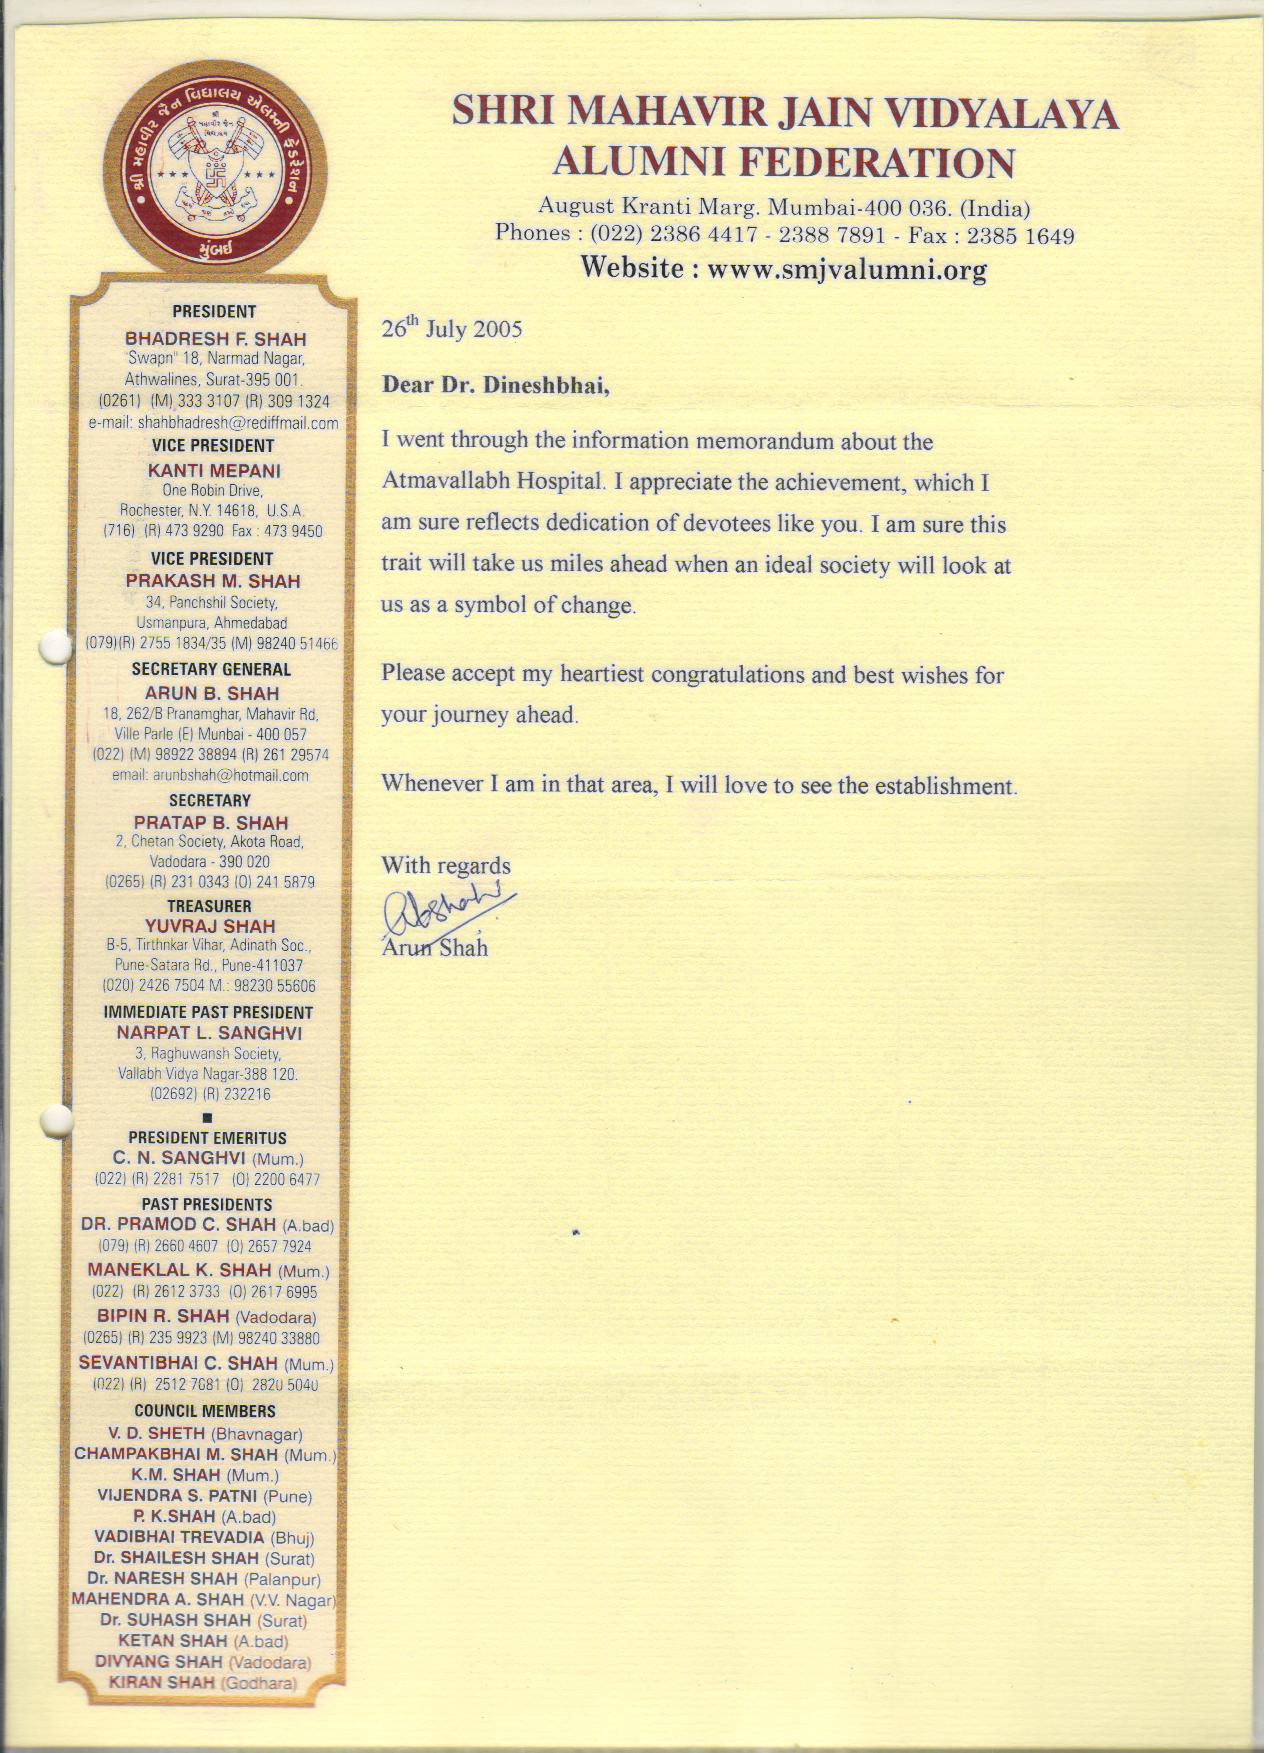 શ્રી મહાવીર જૈન વિદ્યાલય એલમ્ની ફેડરેશન
મુંબઈ
SHRI MAHAVIR JAIN VIDYALAYA
ALUMNI FEDERATION
August Kranti Marg. Mumbai-400 036. (India)
Phones : (022) 2386 4417 - 2388 7891 - Fax : 2385 1649
Website : www.smjvalumni.org
PRESIDENT
BHADRESH F. SHAH
'Swapn" 18, Narmad Nagar,
Athwalines, Surat-395 001.
(0261) (M) 333 3107 (R) 309 1324
e-mail: shahbhadresh@rediffmail.com
VICE PRESIDENT
KANTI MEPANI
One Robin Drive,
Rochester, N.Y. 14618, U.S.A.
(716) (R) 473 9290 Fax : 473 9450
VICE PRESIDENT
PRAKASH M. SHAH
34, Panchshil Society,
Usmanpura, Ahmedabad
(079)(R) 2755 1834/35 (M) 98240 51466
SECRETARY GENERAL
ARUN B. SHAH
18, 262/B Pranamghar, Mahavir Rd,
Ville Parle (E) Munbai - 400 057
(022) (M) 98922 38894 (R) 261 29574
email: arunbshah@hotmail.com
SECRETARY
PRATAP B. SHAH
2, Chetan Society, Akota Road,
Vadodara - 390 020
(0265) (R) 231 0343 (O) 241 5879
TREASURER
YUVRAJ SHAH
B-5, Tirthnkar Vihar, Adinath Soc.,
Pune-Satara Rd., Pune-411037
(020) 2426 7504 M.: 98230 55606
IMMEDIATE PAST PRESIDENT
NARPAT L. SANGHVI
3, Raghuwansh Society,
Vallabh Vidya Nagar-388 120.
(02692) (R) 232216
PRESIDENT EMERITUS
C. N. SANGHVI (Mum.)
(022) (R) 2281 7517 (O) 2200 6477
PAST PRESIDENTS
DR. PRAMOD C. SHAH (A.bad)
(079) (R) 2660 4607 (O) 2657 7924
MANEKLAL K. SHAH (Mum.)
(022) (R) 2612 3733 (O) 2617 6995
BIPIN R. SHAH (Vadodara)
(0265) (R) 235 9923 (M) 98240 33880
SEVANTIBHAI C. SHAH (Mum.)
(022) (R) 2512 7681 (O) 2820 5040
COUNCIL MEMBERS
V. D. SHETH (Bhavnagar)
CHAMPAKBHAI M. SHAH (Mum.)
K.M. SHAH (Mum.)
VIJENDRA S. PATNI (Pune)
P. K.SHAH (A.bad)
VADIBHAI TREVADIA (Bhuj)
Dr. SHAILESH SHAH (Surat)
Dr. NARESH SHAH (Palanpur)
MAHENDRA A. SHAH (V.V. Nagar)
Dr. SUHASH SHAH (Surat)
KETAN SHAH (A.bad)
DIVYANG SHAH (Vadodara)
KIRAN SHAH (Godhara)
26th July 2005
Dear Dr. Dineshbhai,
I went through the information memorandum about the
Atmavallabh Hospital. I appreciate the achievement, which I
am sure reflects dedication of devotees like you. I am sure this
trait will take us miles ahead when an ideal society will look at
us as a symbol of change.
Please accept my heartiest congratulations and best wishes for
your journey ahead.
Whenever I am in that area, I will love to see the establishment.
With regards
Abshah
Arun Shah